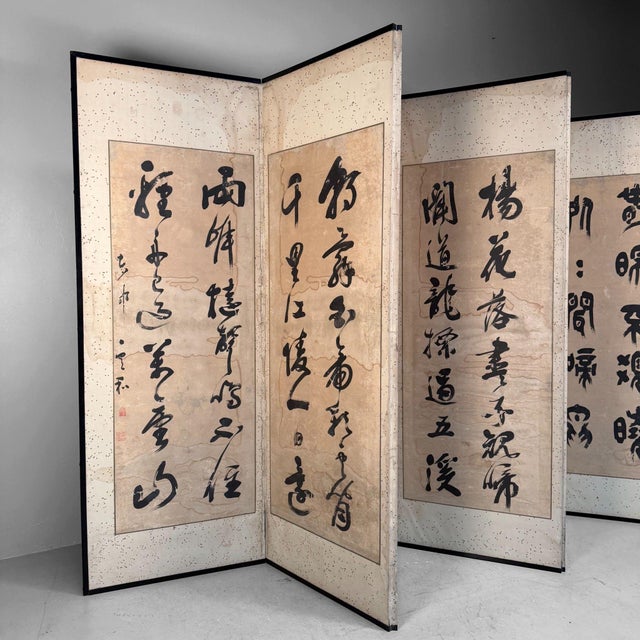 春眠不覺曉
處〻聞啼鳥
楊花落盡子規啼
聞道龍標過五溪
朝辭白帝彩雲間
千里江陵一日還
兩岸猿聲啼不住
輕舟已過萬重山